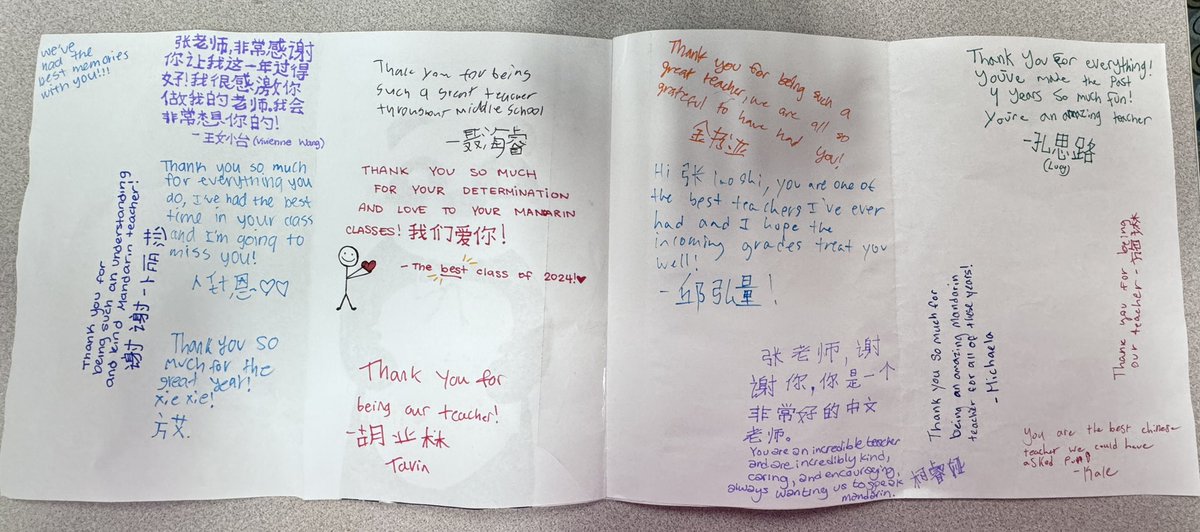 we've
had the
best memories
with you!!!
张老师,非常感谢
你让我这一年过得
好!我很感激你
做我的老师。我会
非常想你的!
-王文小台 (Vivienne Wang)
Thank you so much
for everything you
do, I've had the best
time in your class
and I'm going to
miss you!
恩♡♡
Thank you for
being such an understanding
and kind Mandarin teacher!
谢谢-卜丽
Thank you so
much for the
great year!
xie xie!
方艾.
Thank you for being
such a great teacher
throughout middle school
-聂海睿
THANK YOU SO MUCH
FOR YOUR DETERMINATION
AND LOVE TO YOUR MANDARIN
CLASSES! 我们爱你!
-The best class of 2024!♥
Thank you for
being our teacher!
-胡业林
Tavin
Thank you for being such a
great teacher, we are all so
grateful to have had you!
金
Hi 张 laoshi, you are one of
the best teachers I've ever
had and I hope the
incoming grades treat you
well!
-邱弘量!
张老师,谢
谢你,你是一个
非常好的中文
老师。
You are an incredible teacher
and are incredibly kind,
caring, and encouraging,
always wanting us to speak
mandarin.
柯睿
Thank you for everything!
You've made the past
4 years so much fun!
You're an amazing teacher
-孔思路
(Lucy)
Thank you so much for
being an amazing Mandarin
teacher for all of these years!
- Michaela
Thank you for being
our teacher -
You are the best chinese
teacher we could have
asked for
-Kale